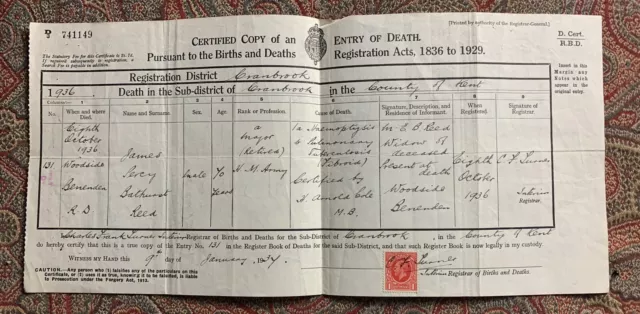 D 741149
[Printed by authority of the Registrar-General.]
CERTIFIED COPY of an ENTRY OF DEATH.
Pursuant to the Births and Deaths Registration Acts, 1836 to 1929.
D. Cert.
R.B.D.
The Statutory Fee for this Certificate is
If required subsequently to registration, a
Search Fee is payable in addition.
Registration District Cranbrook
1936. Death in the Sub-district of Cranbrook in the County of Kent
Issued in this Margin any Notes which appear in the original entry.
Columns:— 1 2 3 4 5 6 7 8 9
No. When and where Died. Name and Surname. Sex. Age. Rank or Profession. Cause of Death. Signature, Description, and Residence of Informant. When Registered. Signature of Registrar.
131
Eighth October 1936
Woodside
Benenden
R.D
James Percy Bathurst Reed
male
70 years
a major (Retired) H.M. Army
1a Haemoptysis
Pulmonary Tuberculosis (Fibroid)
Certified by
Arnold
M.B.
Reed
Widow of deceased
Present at death
Woodside
Benenden
Eighth October 1936
Interim Registrar.
I, Charles Frank Interim Registrar of Births and Deaths for the Sub-District of Cranbrook, in the County of Kent
do hereby certify that this is a true copy of the Entry No. 131 in the Register Book of Deaths for the said Sub-District, and that such Register Book is now legally in my custody.
WITNESS MY HAND this 9th day of January, 1937
Interim Registrar of Births and Deaths.
CAUTION.—Any person who (1) falsifies any of the particulars on this
Certificate, or (2) uses it as true, knowing it to be falsified, is liable
to Prosecution under the Forgery Act, 1913.